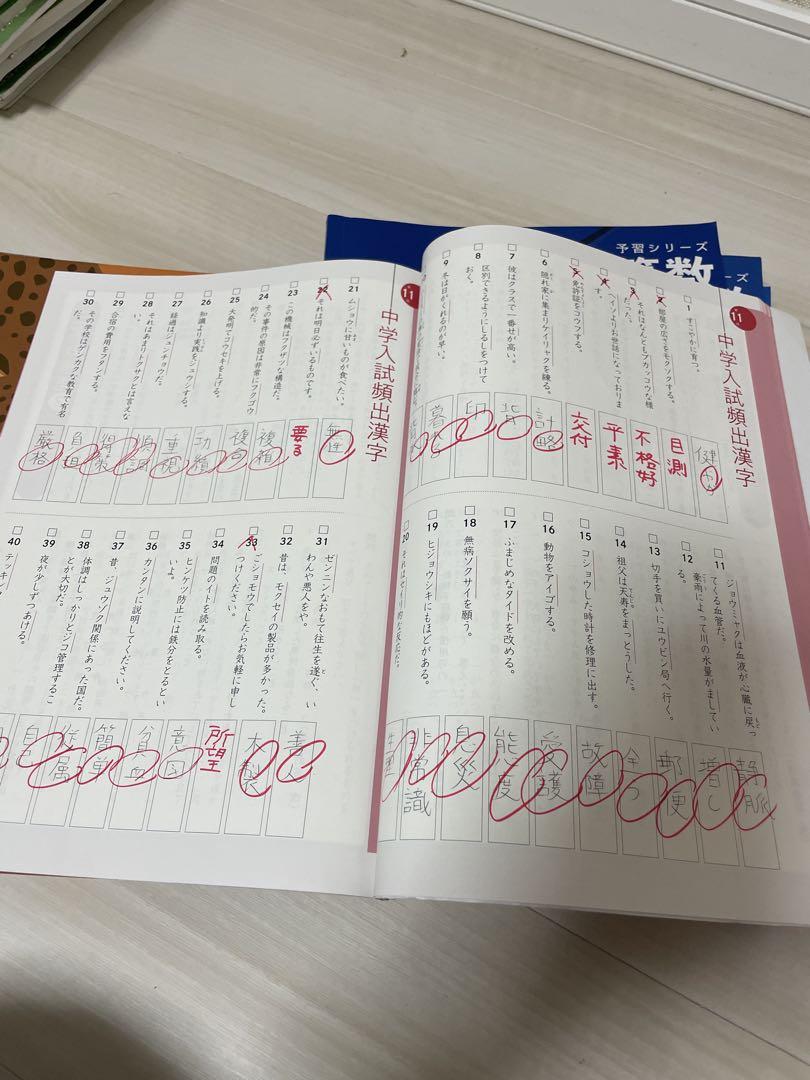 予習シリーズ
算数
ーズ
11
中学入試頻出漢字
1 すこやかに育つ。
健やか
2 部屋の広さをモクソクする。
目測
3 それはなんともブカッコウな様
だった。
不格好
4 ヘイソよりお世話になっておりま
す。
平素
5 免許証をコウフする。
交付
6 隠れ家に集まりケイリャクを練る。
計略
7 彼はクラスで一番せが高い。
背
8 区別できるようにしるしをつけて
おく。
印
9 冬は日がくれるのが早い。
暮れ
11 ジョウミャクは血液が心臓に戻っ
てくる血管だ。
静脈
12 豪雨によって川の水量がましてい
る。
増し
13 切手を買いにユウビン局へ行く。
郵便
14 祖父は天寿をまっとうした。
全う
15 コショウした時計を修理に出す。
故障
16 動物をアイゴする。
愛護
17 ふまじめなタイドを改める。
態度
18 無病ソクサイを願う。
息災
19 ヒジョウシキにもほどがある。
非常識
20
11
中学入試頻出漢字
21 ムショウに甘いものが食べたい。
無性
22 それは明日必ずいるものです。
要る
23 この機械はフクザツな構造だ。
複雑
24 その事件の原因は非常にフクゴウ
的だ。
複合
25 大発明でコウセキを上げる。
功績
26 知識より実践をジュウシする。
重視
27 経過はジュンチョウだ。
順調
28 それはあまりトクサクとは言えな
い。
得策
29 合宿の費用をフタンする。
負担
30 その学校はゲンカクな教育で有名
だ。
厳格
31 ゼンニンなおもて往生を遂ぐ、い
わんや悪人をや。
善人
32 昔は、モクセイの製品が多かった。
木製
33 ごショモウでしたらお気軽に申し
つけください。
所望
34 問題のイトを読み取る。
意図
35 ヒンケツ防止には鉄分をとるとい
いよ。
貧血
36 カンタンに説明してください。
簡単
37 昔、ジュウゾク関係にあった国だ。
従属
38 体調はしっかりとジコ管理するこ
とが大切だ。
自己
39 夜が少しずつあける。
40